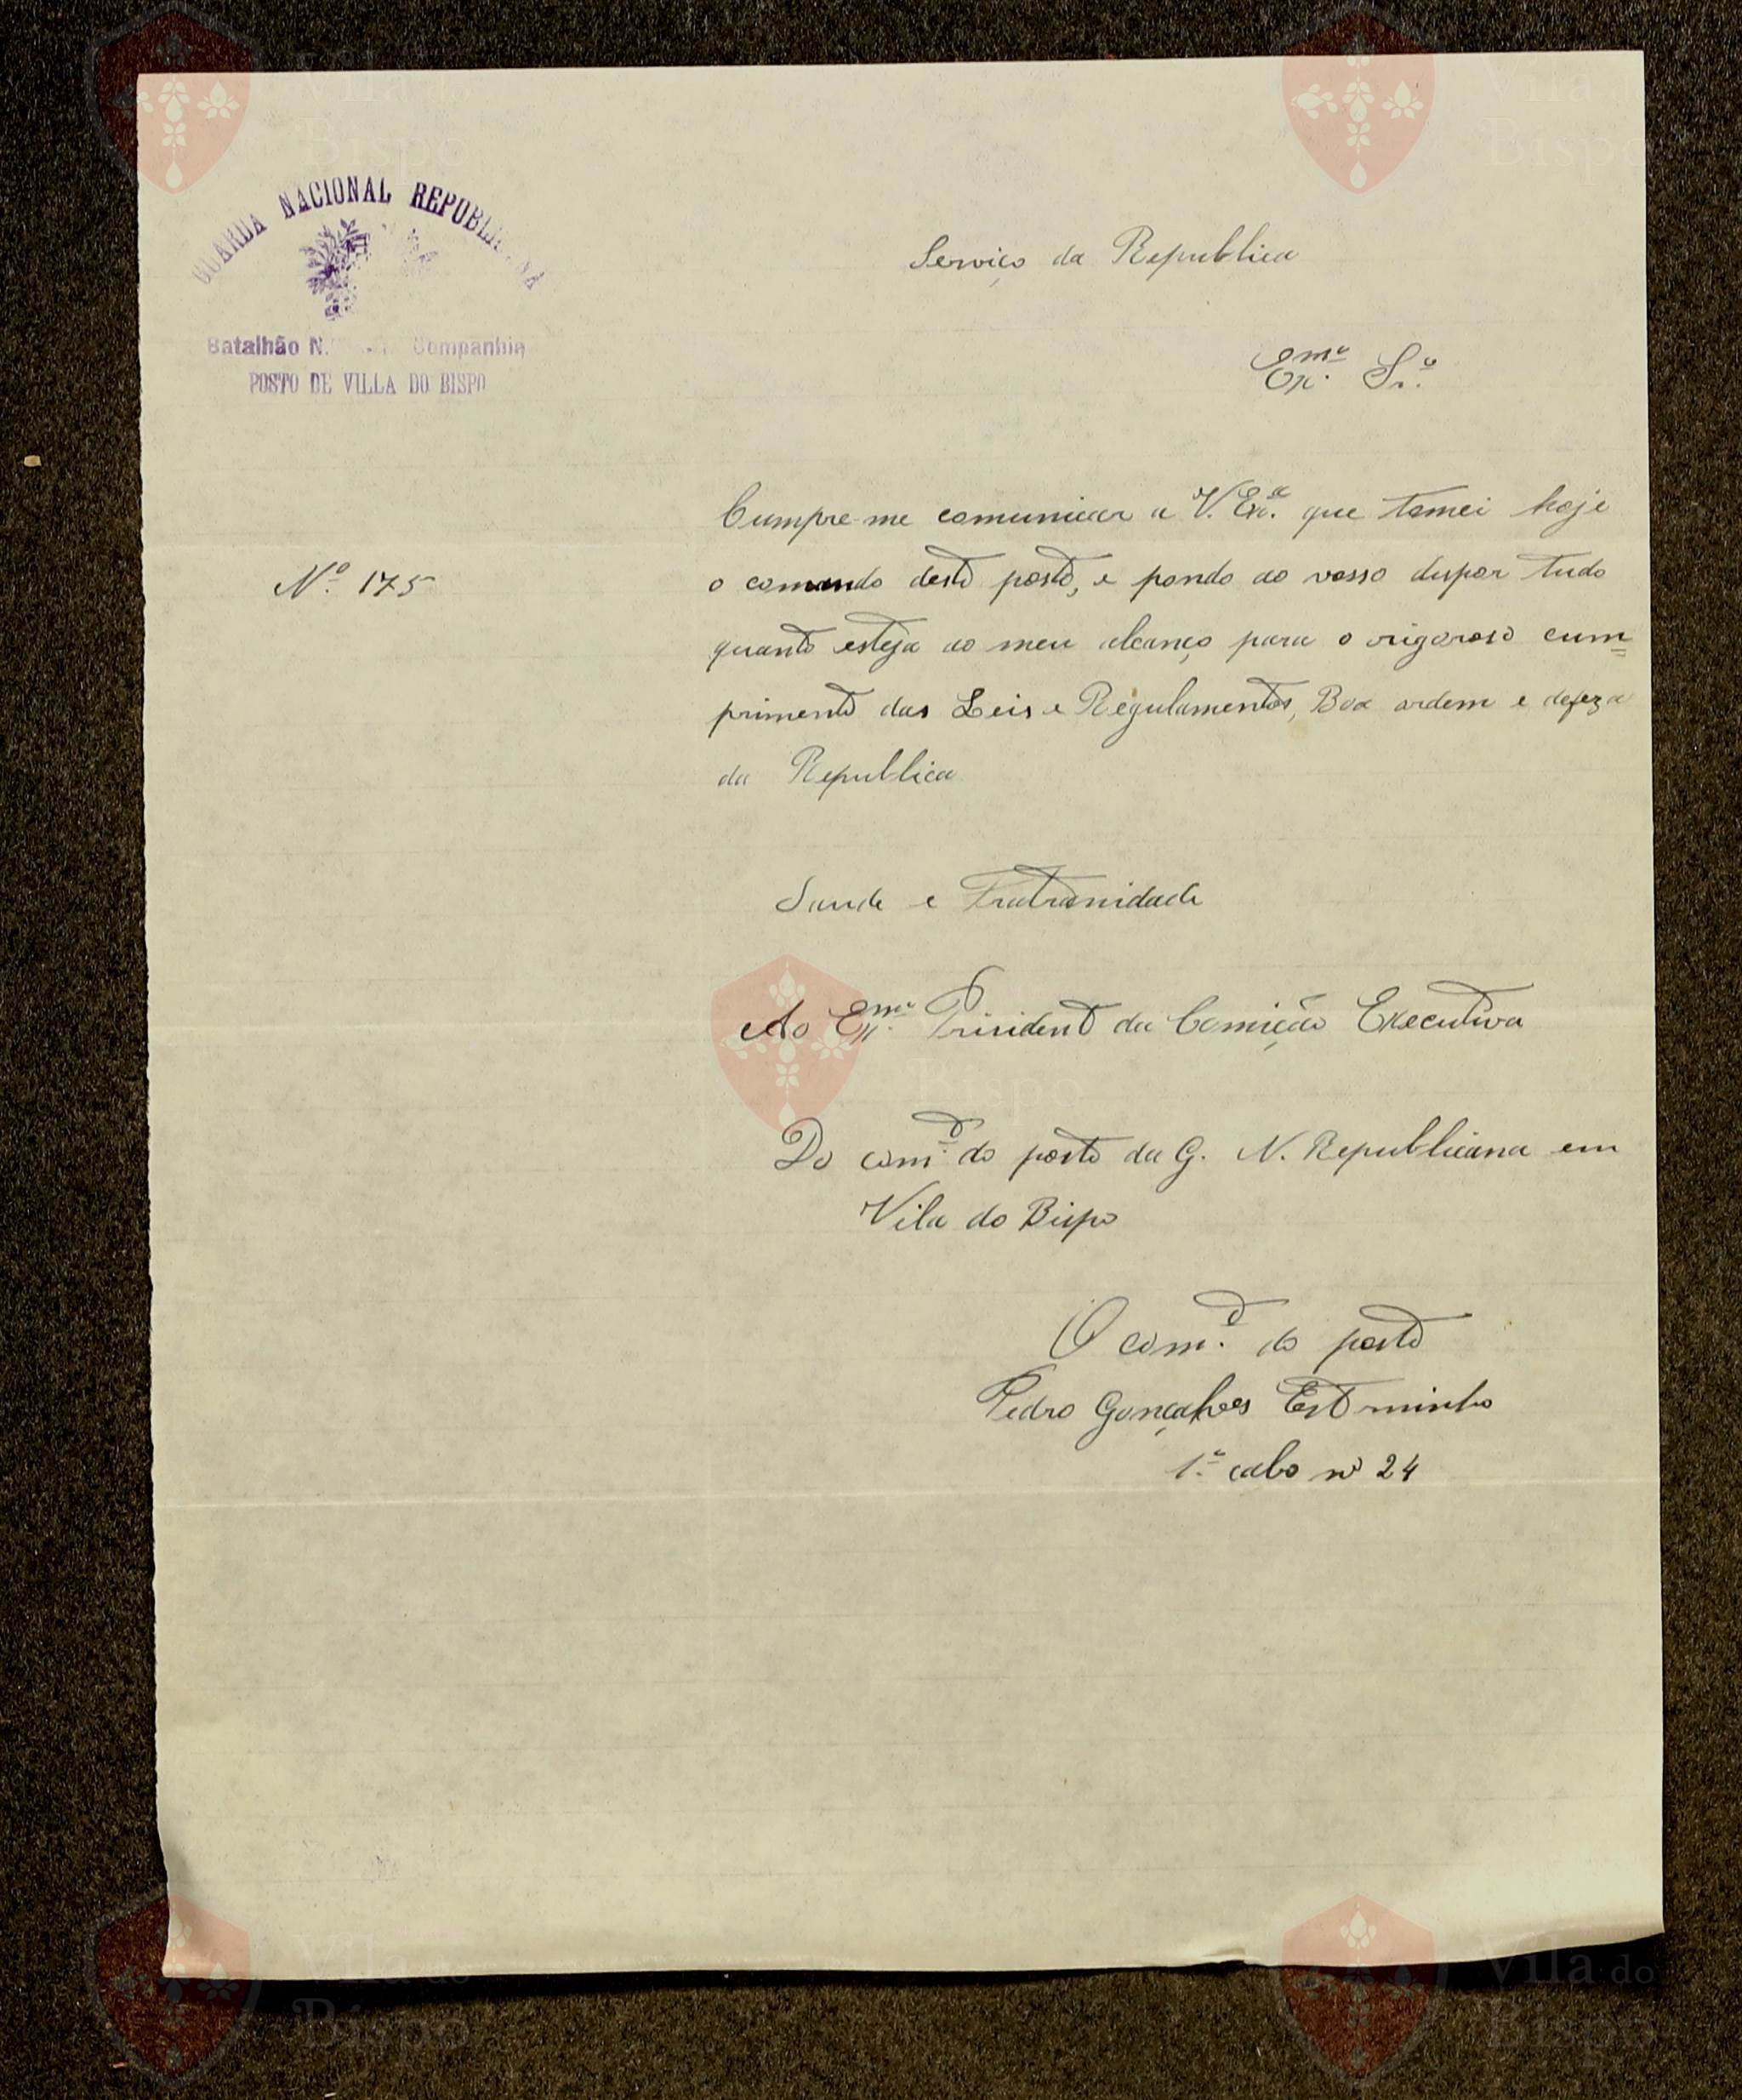 GUARDA NACIONAL REPUBLICANA
Batalhão N. Companhia
POSTO DE VILLA DO BISPO
Serviço da Republica
Exmo Snr.
Cumpre-me comunicar a V. Exa. que tomei hoje
o comando desto posto, e pondo ao vosso dispor tudo
Nº 175
quanto esteja ao meu alcanço para o rigoroso cum=
primento das Leis e Regulamentos, Boa ordem e defeza
da Republica
Saude e Fratranidade
Ao Exmo. Prisident da Comição Executiva
Do comd. do posto da G. N. Republicana em
Vila do Bispo
O comd. do posto
Pedro Gonçalves
1º cabo nº 24
Vila do
Bispo
Vila
Bispo
Bispo
Vila do
Bispo
Vila do
Bispo